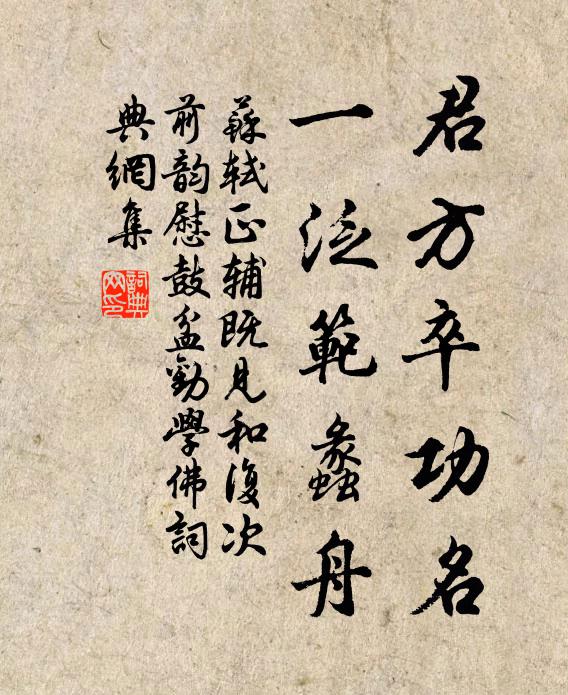 君方卒功名
一泛範蠡舟
蘇軾正輔既見和復次
前韵慰鼓盆勸學佛詞
典網集
詞典
网印